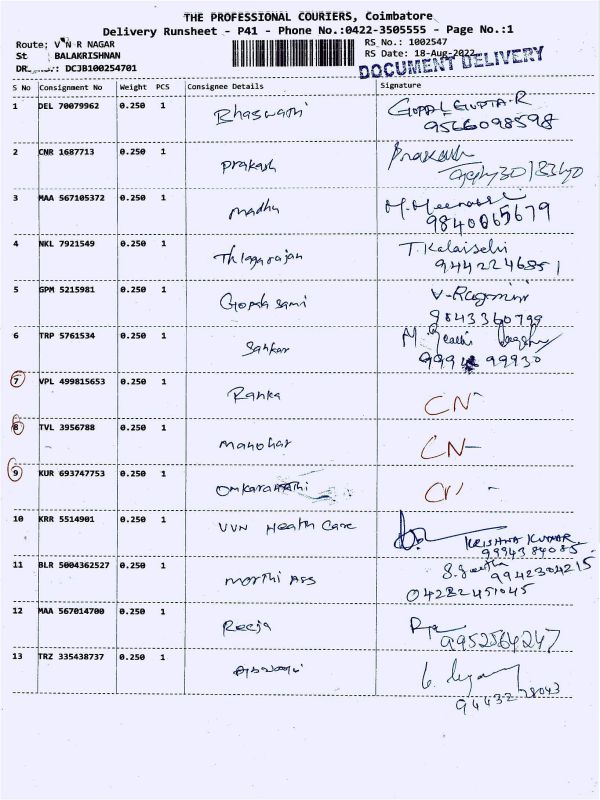 THE PROFESSIONAL COURIERS, Coimbatore
Delivery Runsheet - P41 - Phone No.:0422-3505555 - Page No.:1
Route: V N R NAGAR
RS No.: 1002547
St BALAKRISHNAN
RS Date: 18-Aug-2022
DCJB100254701
DOCUMENT DELIVERY
S No Consignment No Weight PCS Consignee Details Signature
1 DEL 70079962 0.250 1 Bhaswathi GOPAL GUPTA.R
9566098598
2 CNR 1687713 0.250 1 Prakash Prakash
3 MAA 567105372 0.250 1 madhu M.Meenakshi
9840065679
4 NKL 7921549 0.250 1 Thiagarajan T.Kalaiselvi
9442246851
5 GPM 5215981 0.250 1 Gopalsami V-Ragomini
9843360799
6 TRP 5761534 0.250 1 Sankar M.
99930
7 VPL 499815653 0.250 1 Ranka CN-
8 TVL 3956788 0.250 1 Manohar CN-
9 KUR 693747753 0.250 1
10 KRR 5514901 0.250 1 VVN Health Care KRISHNA KUMAR
9994384085
11 BLR 5004362527 0.250 1 morthi Ass S.Geetha 9942304215
04222451045
12 MAA 567014700 0.250 1 Reeja
9952564247
13 TRZ 335438737 0.250 1
94432 28043